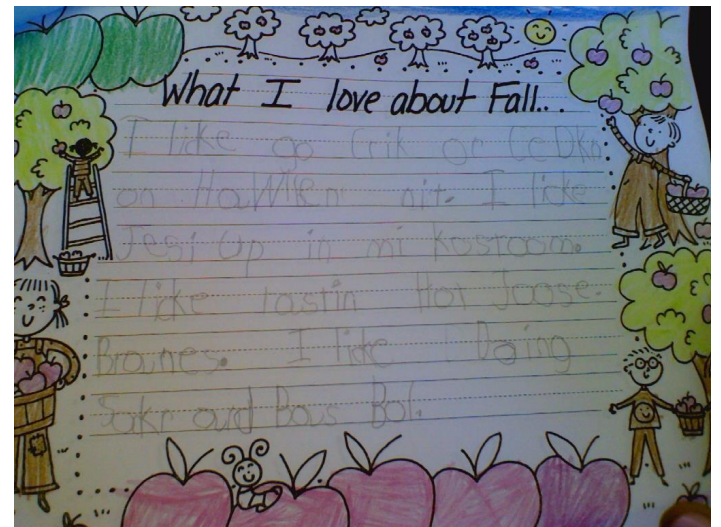 What I love about Fall...
I like go Crik or CeDKn
on HaWIEn nit. I licke
Jest Up in mi kostoom.
I licke tastin Hot Joose.
Braines. I like Doing
Sokr and Bous Bol.